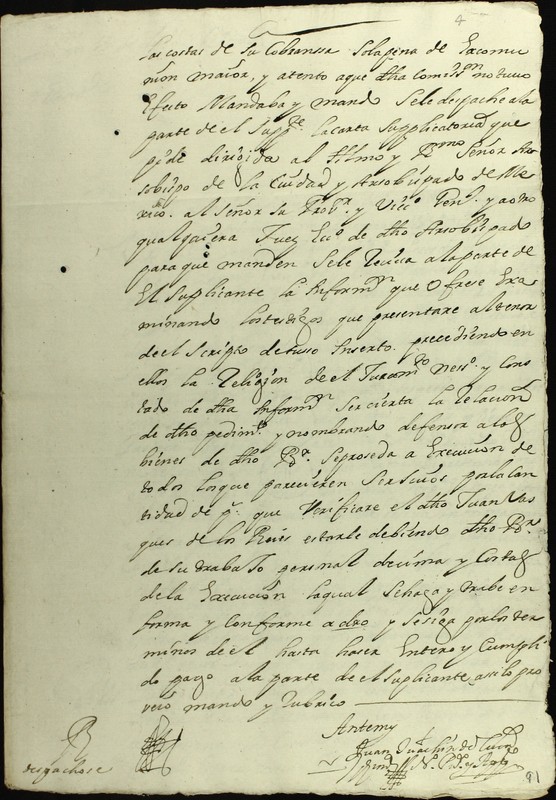 4
las costas de su Cobranssa solapena de Excomu
nion maior, y atento aque dha comisson notuuo
Efecto Mandaba y mando Sele despache ala
parte de el Suppte. lacarta Supplicatoria que
pide dirigida al Illmo y Rmo Señor Ar
sobispo de la Ciudad y Arsobispado de Me
xico. al señor su Probr. y Vico. Genl. y aotro
qualquiera Juez Eco. de dho Arsobispado
para que manden Sele Reciua ala parte de
El Suplicante la Informn que Ofrese Exa
minando lostestigos que presentare altenor
de el Scripto desuso Inserto. precediendo en
ellos la Religion de el Juramto. Neso. y Cons
tado de dha Informn Ser cierta la Relacion
de dho pedimto. y nombrando defensor alos
bienes de dho Br. Seproseda a Execucion de
todos losque parecieren Ser suios por la can
tidad de ps. que Verificare el dho Juan Vas
ques de los Reies estarle debiendo dho Br.
de su trabajo personal decima y Costas
de la Execucion laqual Sehaga y trabe en
forma y Conforme a dro y Sesiga por los ter
minos de el hasta haser Entero y Cumpli
do pago ala parte de el suplicante asi lo pro
veió mando y Rubrico
Antemy
Juan Joachin de
R
despachose
91